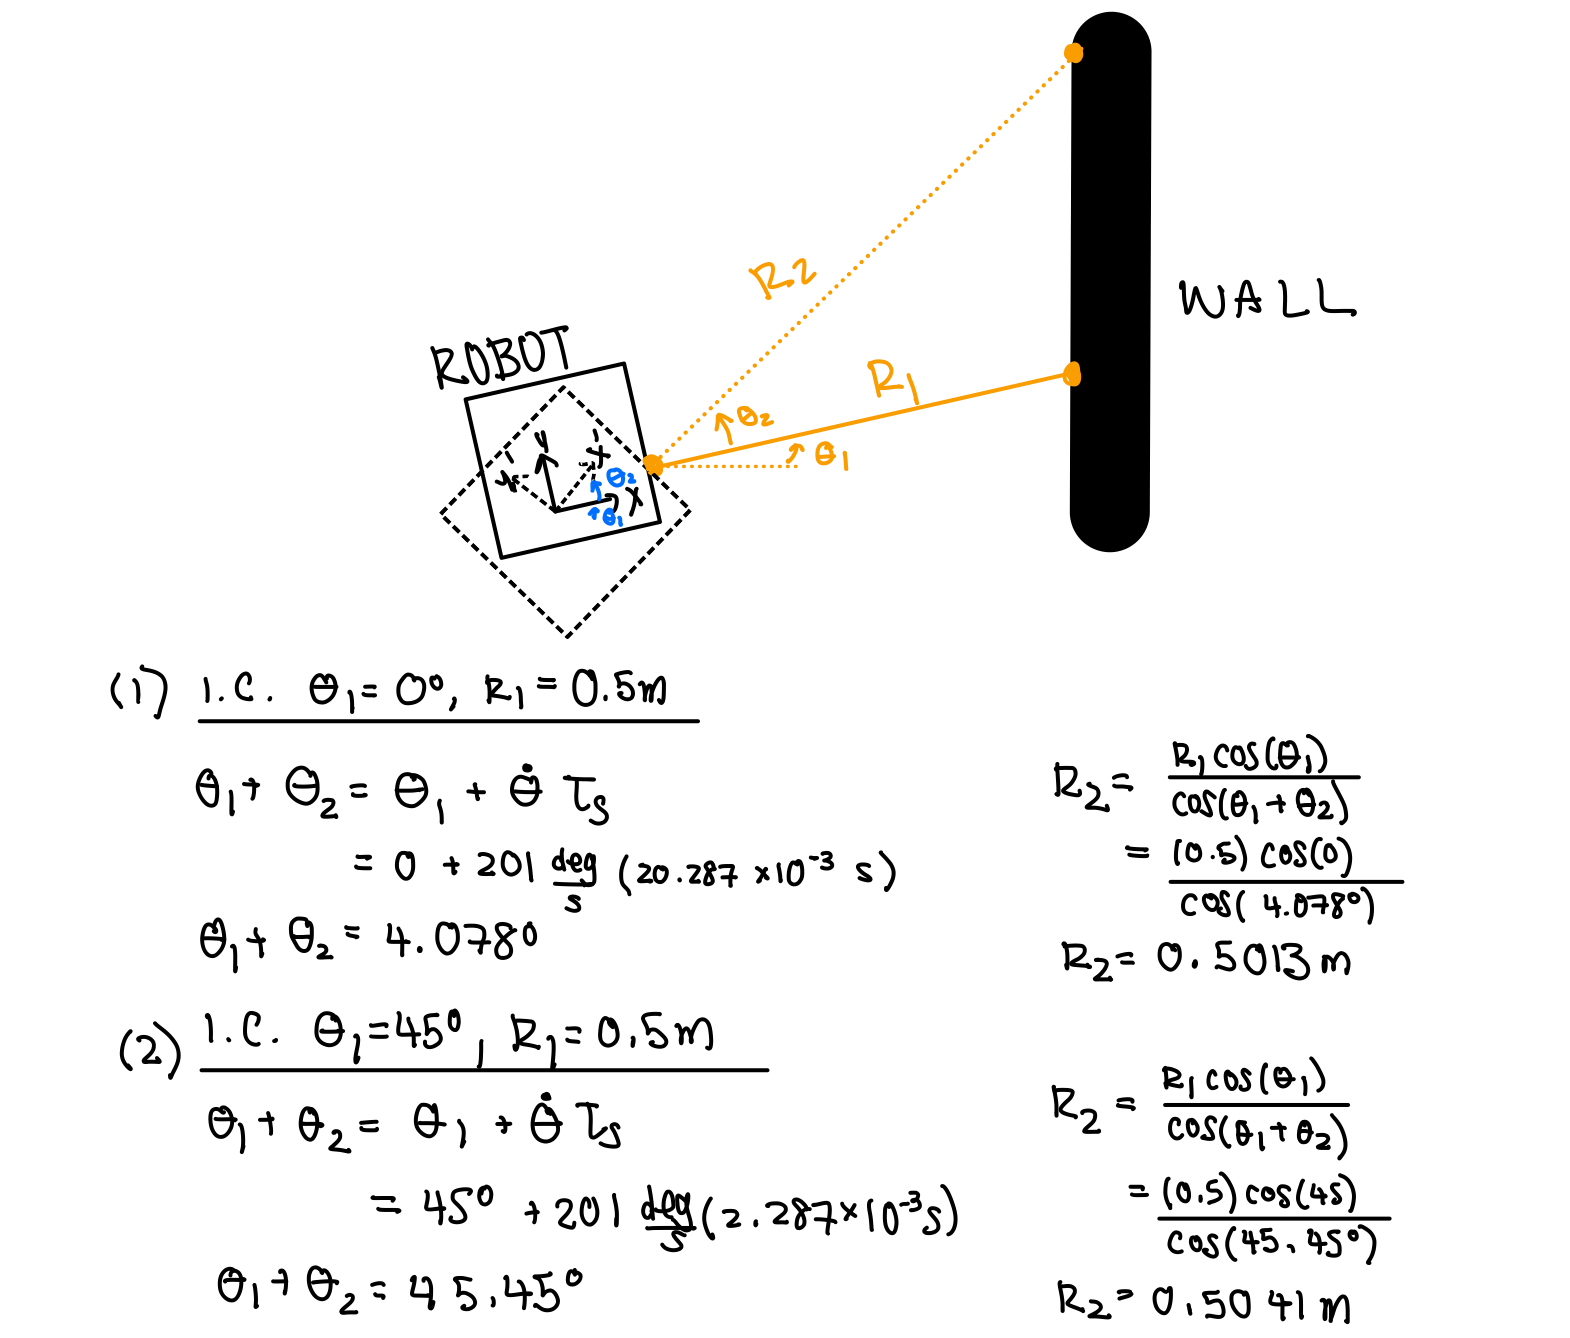 R2
WALL
ROBOT
R1
θ2
θ1
y
x
y'
x'
θ2
θ1
(1) I.C. θ1 = 0°, R1 = 0.5m
θ1 + θ2 = θ1 + θ̇ Ts
= 0 + 201 deg/s (20.287 × 10⁻³ s)
θ1 + θ2 = 4.078°
R2 = R1 cos(θ1) / cos(θ1 + θ2)
= (0.5) cos(0) / cos(4.078°)
R2 = 0.5013 m
(2) I.C. θ1 = 45°, R1 = 0.5m
θ1 + θ2 = θ1 + θ̇ Ts
= 45° + 201 deg/s (2.287 × 10⁻³ s)
θ1 + θ2 = 45.45°
R2 = R1 cos(θ1) / cos(θ1 + θ2)
= (0.5) cos(45) / cos(45.45°)
R2 = 0.5041 m